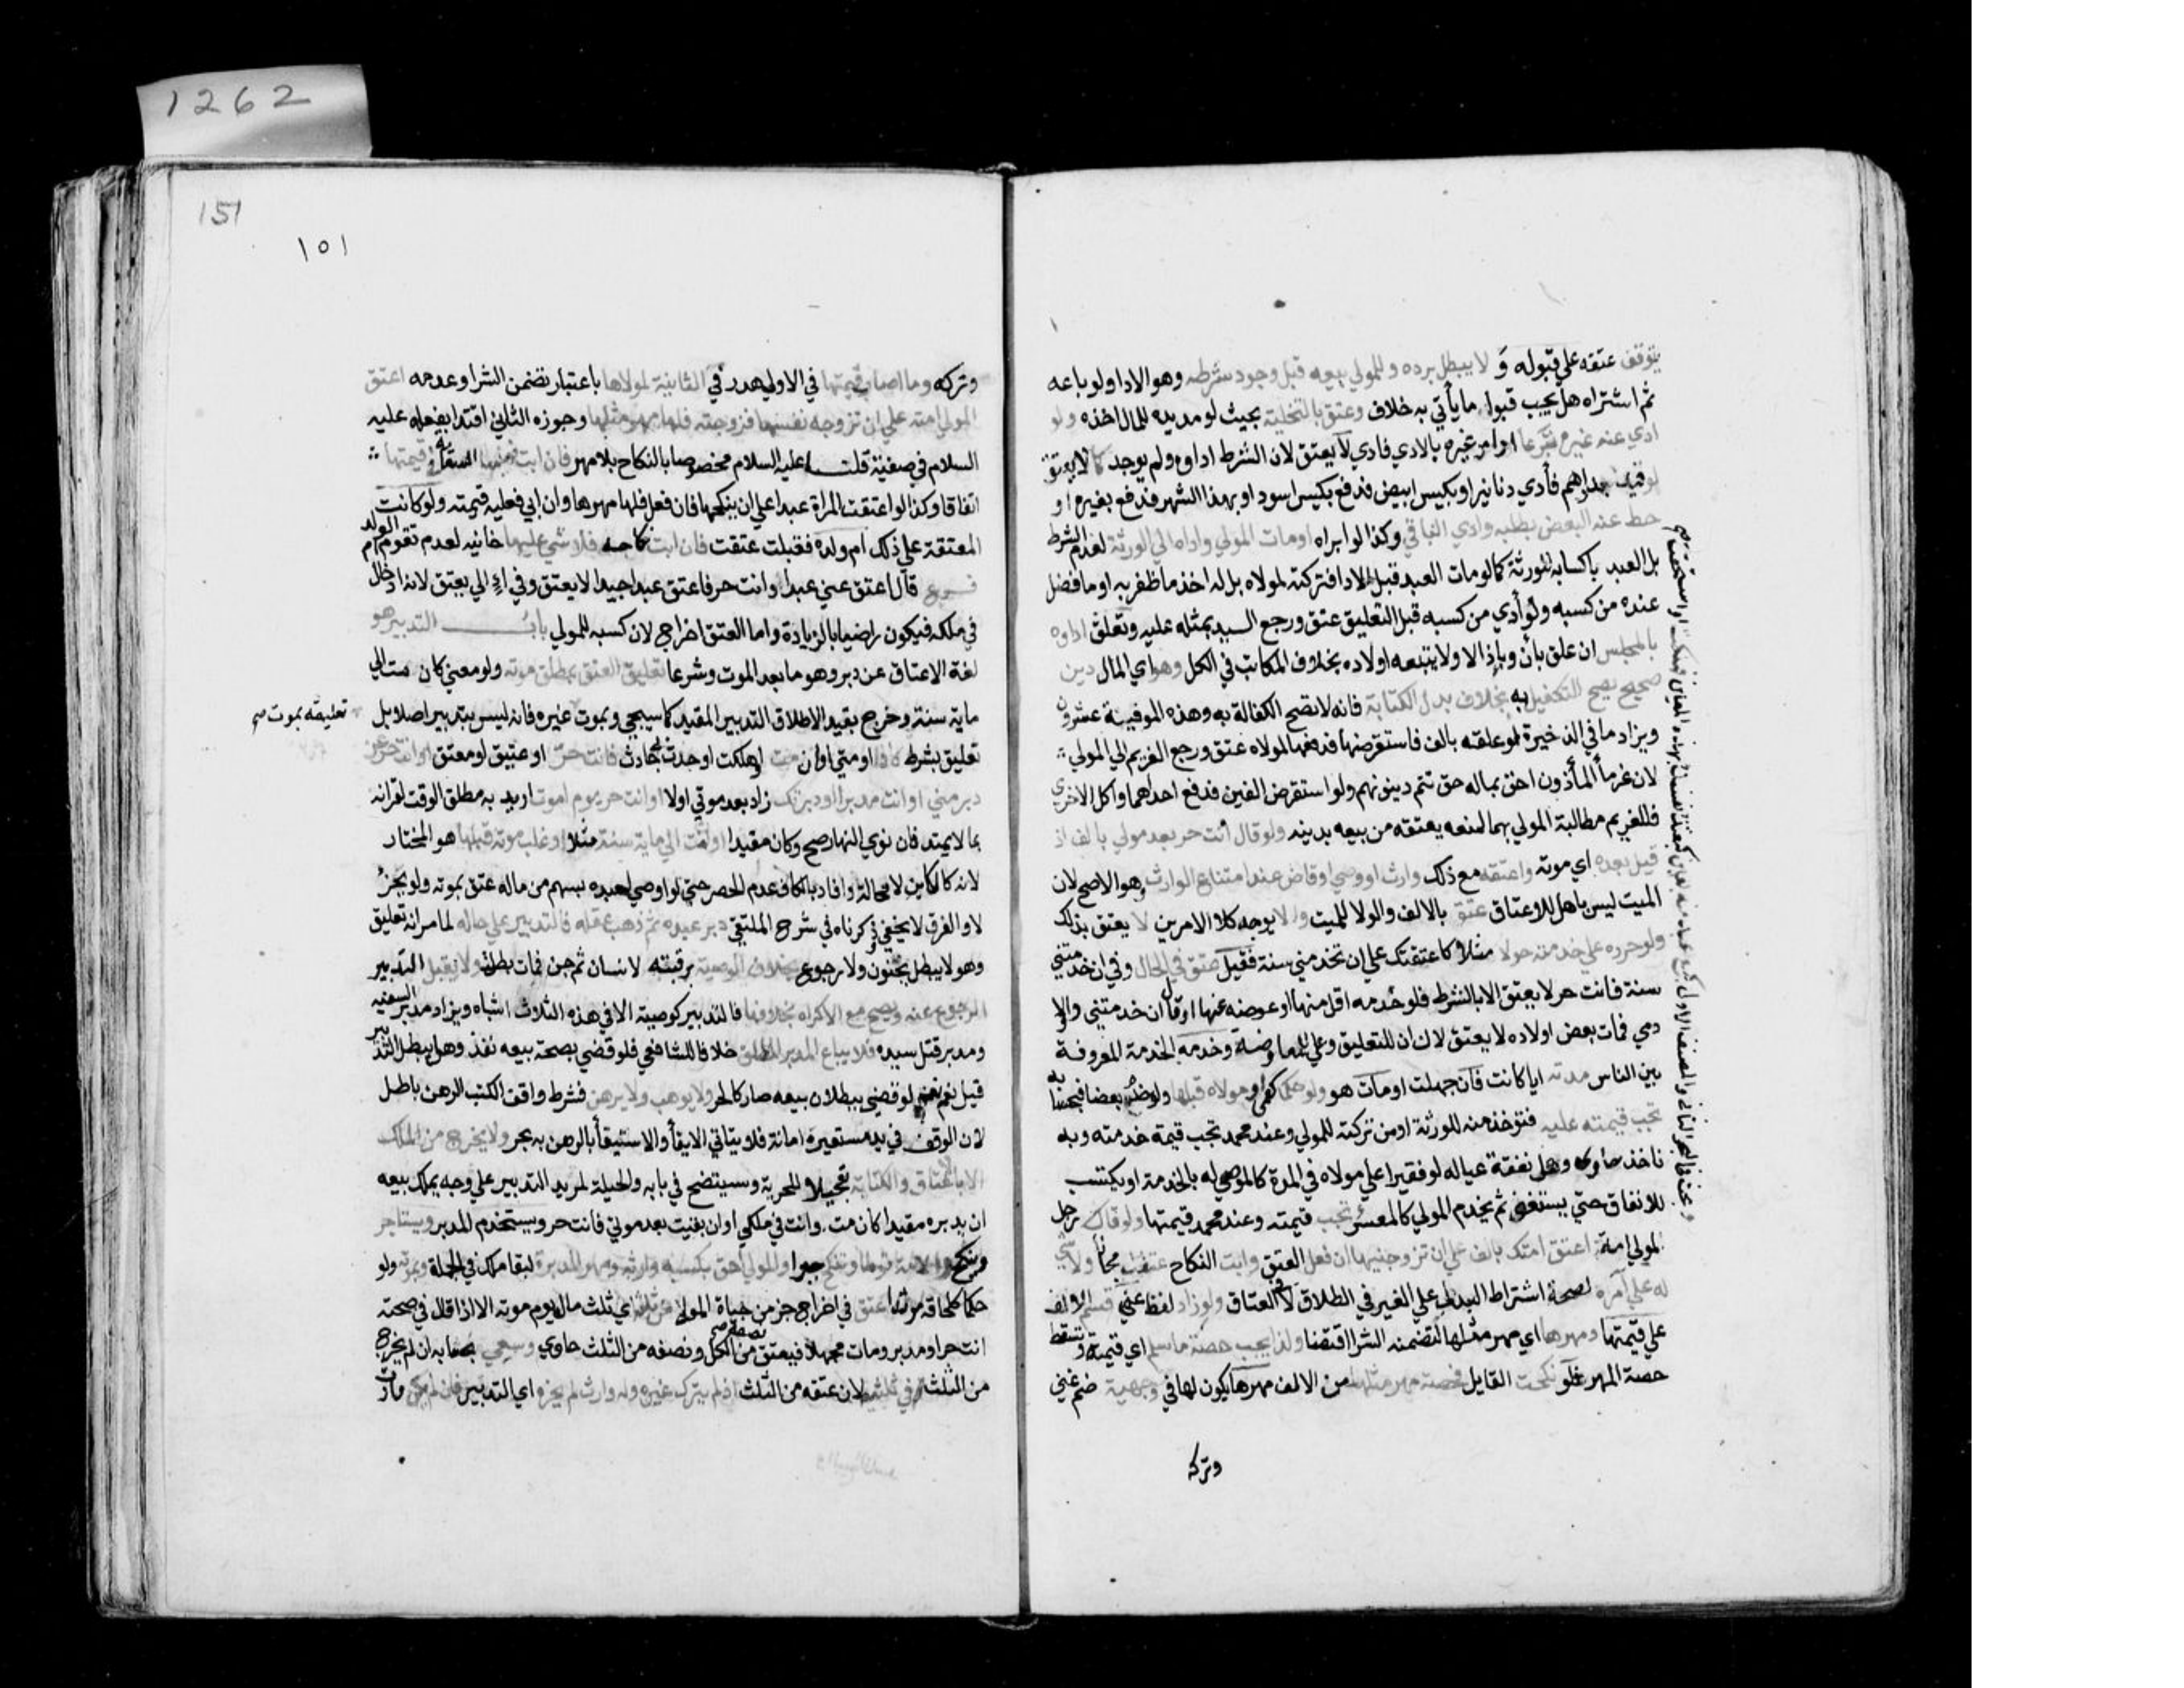 يتوقف عتقه علي قبوله و لا يبطل برده وللمولي بيعه قبل وجود شرطه وهو الادا ولو باعه
ثم اشتراه هل يجب قبول ما يأتي به خلاف وعتق بالتخلية بحيث لو مد يده للمال اخذه ولو
ادي عنه غيره تبرعا او امر غيره بالادي فادي لا يعتق لان الشرط اداوه ولم يوجد كما لا يعتق
لو قيد بدراهم فأدي دنانير او بكيس ابيض فدفع بكيس اسود او بهذا الشهر فدفع بغيره او
حط عنه البعض بطلبه وادي الباقي وكذا لو ابراه او مات المولي واداه الي الورثة لعدم الشرط
بل العبد باكسابه للورثة كما لو مات العبد قبل الادا فتركته لمولاه بل له اخذ ما ظفر به او ما فضل
عنده من كسبه ولو أدي من كسبه قبل التعليق عتق ورجع السيد بمثله عليه وتعلق اداوه
بالمجلس ان علق بأن وبإذا لا ولا يتبعه اولاده بخلاف المكاتب في الكل وهو اي المال دين
صحيح يصح التكفيل به بخلاف بدل الكتابة فانه لا تصح الكفالة به وهذه الموفية عشرون
ويزاد ما في الذخيرة لو علقه بالف فاستقرضها فدفعها لمولاه عتق ورجع الغريم الي المولي
لان غرما المأذون احق بماله حتي تتم ديونهم ولو استقرض الفين فدفع احداهما واكل الاخري
فللغريم مطالبة المولي بهما لمنعه بعتقه من بيعه بدينه ولو قال أنت حر بعد موتي بالف اذ
قبل بعده اي موته واعتقه مع ذلك وارث او وصي او قاض عند امتناع الوارث وهو الاصح لان
الميت ليس باهل للاعتاق عتق بالالف والولا للميت ولا يوجد كلا الامرين لا يعتق بذلك
ولو حرره علي خدمته حولا مثلا كاعتقتك علي ان تخدمني سنة فقبل عتق في الحال وفي ان خدمتني
سنة فانت حر لا يعتق الا بالشرط فلو خدمه اقل منها او عوضه عنها او قال ان خدمتني واولا
دي فمات بعض اولاده لا يعتق لان ان للتعليق وعلي للمعاوضة وخدمه الخدمة المعروفة
بين الناس مدته ايا كانت فان جهلت او مات هو ولو حكما كعمي او مولاه قبلها ولو خدم بعضا فبحسابه
تجب قيمته عليه فتؤخذ منه للورثة او من تركته للمولي وعند محمد تجب قيمة خدمته وبه
ناخذ حاوي وهل نفقة عياله لو فقيرا علي مولاه في المدة كالموصي له بالخدمة او يكتسب
للانفاق حتي يستغني ثم يخدم المولي كالمعسر تجب قيمته وعند محمد قيمتها ولو قال رجل
لمولي امة اعتق امتك بالف علي ان تزوجنيها ان فعل العتق وابت النكاح عتقت مجانا ولا شي
له علي آمره لصحة اشتراط البدل علي الغير في الطلاق لا في العتاق ولو زاد لفظ عني قسم الالف
علي قيمتها ومهرها اي مهر مثلها لتضمنه الشرا اقتضا ولذا يجب حصة ما سلم اي قيمته وتسقط
حصة المهر فلو نكحت القايل فحصة مهر مثلها من الالف مهرها يكون لها في وجهيه ضم عني
وتركه
151
١٥١
وتركه وما اصاب قيمتها في الاولي هدر وفي الثانية لمولاها باعتبار تضمن الشرا وعدمه اعتق
المولي امته علي ان تزوجه نفسها فزوجته فلها مهر مثلها وجوزه الثاني اقتدا بفعله عليه
السلام في صفية قلت عليه السلام مخصوصا بالنكاح بلا مهر فان ابت فعليها السعاية في قيمتها
اتفاقا وكذا لو اعتقت المراة عبدا علي ان ينكحها فان فعل فلها مهرها وان ابي فعليه قيمته ولو كانت
المعتقة علي ذلك ام ولده فقبلت عتقت فان ابت نكاحه فلا شي عليها خانيه لعدم تقوم ام الولد
فروع قال اعتق عني عبدا وانت حر فاعتق عبدا جيدا لا يعتق وفي ادّ الي يعتق لانه ادخال
في ملكه فيكون راضيا بالزيادة واما العتق اخراج لان كسبه للمولي باب التدبير هو
لغة الاعتاق عن دبر وهو ما بعد الموت وشرعا تعليق العتق بمطلق موته ولو معني كان مت الي
ماية سنة وخرج بقيد الاطلاق التدبير المقيد كما سيجي وبموت غيره فانه ليس بتدبير اصلا بل
تعليقه بموت صح
تعليق بشرط كاذا او متي او ان مت او هلكت او حدث لي حادث فانت حر او عتيق او معتق او انت حر عن
دبر مني او انت مدبر او دبرتك زاد بعد موتي اولا او انت حر يوم اموت اريد به مطلق الوقت لقرانه
بما لا يمتد فان نوي النهار صح وكان مقيدا او انت الي ماية سنة مثلا وغلب موته قبلها هو المختار
لانه كالكاين لا محالة وافاد بالكاف عدم الحصر حتي لو اوصي لعبده بسهم من ماله عتق بموته ولو بجز
لا والفرق لا يخفي ذكرناه في شرح الملتقي دبر عبده ثم ذهب عقله فالتدبير علي حاله لما مر انه تعليق
وهو لا يبطل بجنون ولا رجوع بخلاف الوصية برقبته لانسان ثم جن فمات بطلت ولا يقبل التدبير
الرجوع عنه ويصح مع الاكراه بخلافها فالتدبير كوصية الا في هذه الثلاث اشباه ويزاد مدبر السفيه
ومدبر قتل سيده فلا يباع المدبر المطلق خلافا للشافعي فلو قضي بصحة بيعه نفذ وهل يبطل التدبير
قيل نعم لو قضي ببطلان بيعه صار كالحر ولا يوهب ولا يرهن فشرط واقف الكتب الرهن باطل
لان الوقف في يد مستعيره امانة فلا يتاتي الايفا والاستيفا بالرهن به بحر ولا يخرج من الملك
الا بالاعتاق والكتابة تعجيلا للحرية وسيتضح في بابه والحيلة لمريد التدبير علي وجه يملك بيعه
ان يدبره مقيدا كان مت وانت في ملكي او ان بقيت بعد موتي فانت حر ويستخدم المدبر ويستاجر
وينكح والامة توطا وتنكح جبرا والمولي احق بكسبه وارثه ومهر المدبرة لبقا ملكه في الجملة وبموته ولو
حكما كلحاقه مرتدا عتق في اخراج جز من حياة المولي من ثلثه اي ثلث ماله يوم موته الا اذا قال في صحته
انت حر او مدبر ومات مجهلا فيعتق نصفه صح من الكل ونصفه من الثلث حاوي وسعي بحسابه ان لم يخرج
من الثلث وفي ثلثيه لان عتقه من الثلث اذ لم يترك غيره وله وارث لم يجزه اي التدبير فان لم يكن وارث